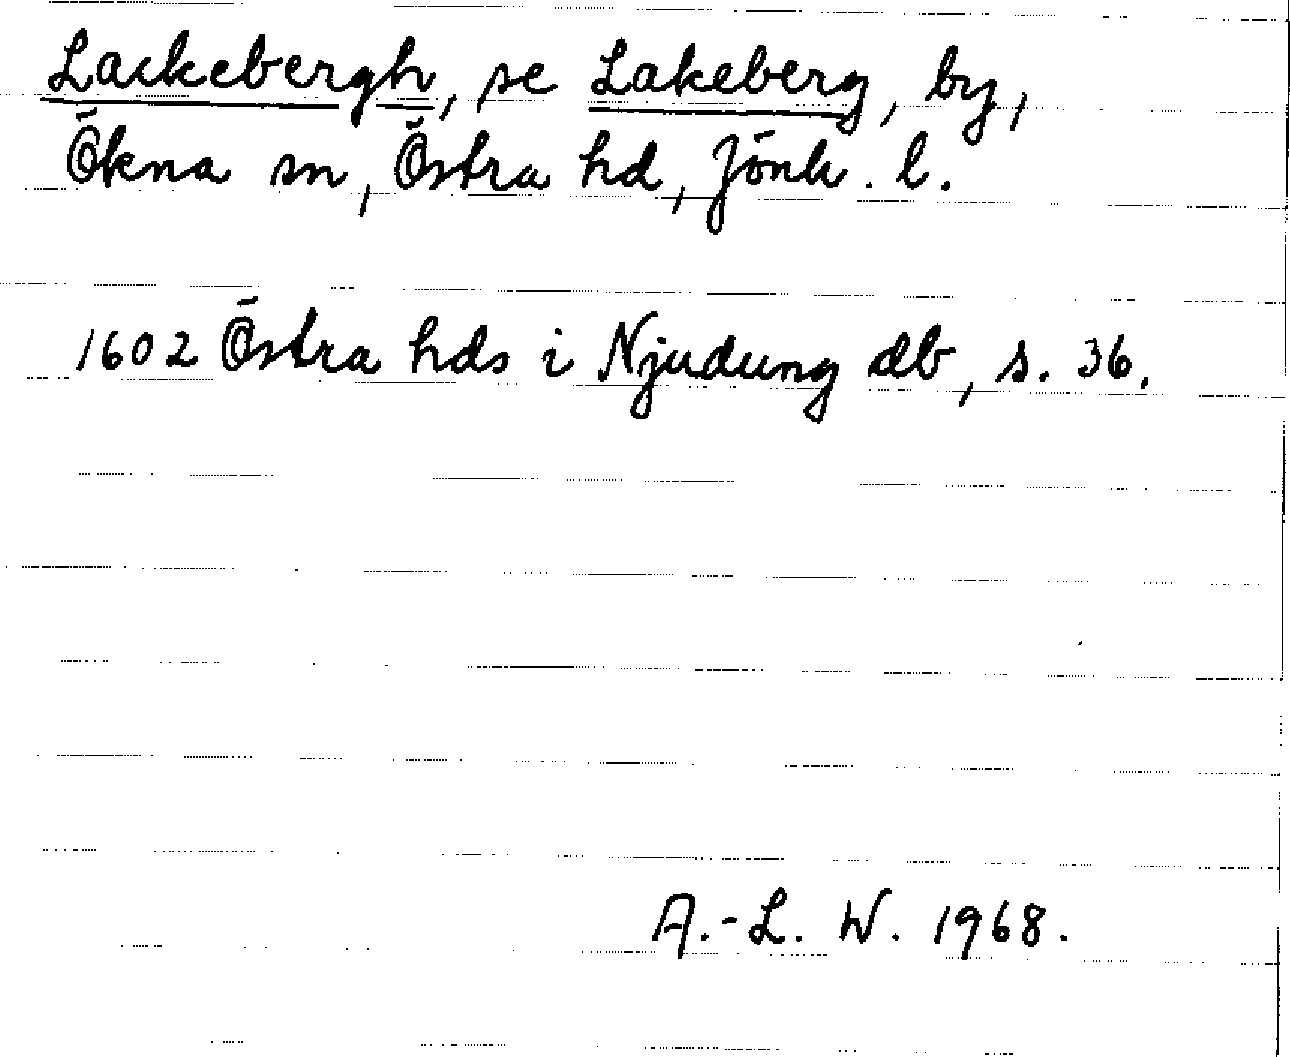 Lackebergh, se Lakeberg, by,
Ökna sn, Östra hd, Jönk. l.
1602 Östra hds i Njudung db, s. 36.
A.-L. W. 1968.